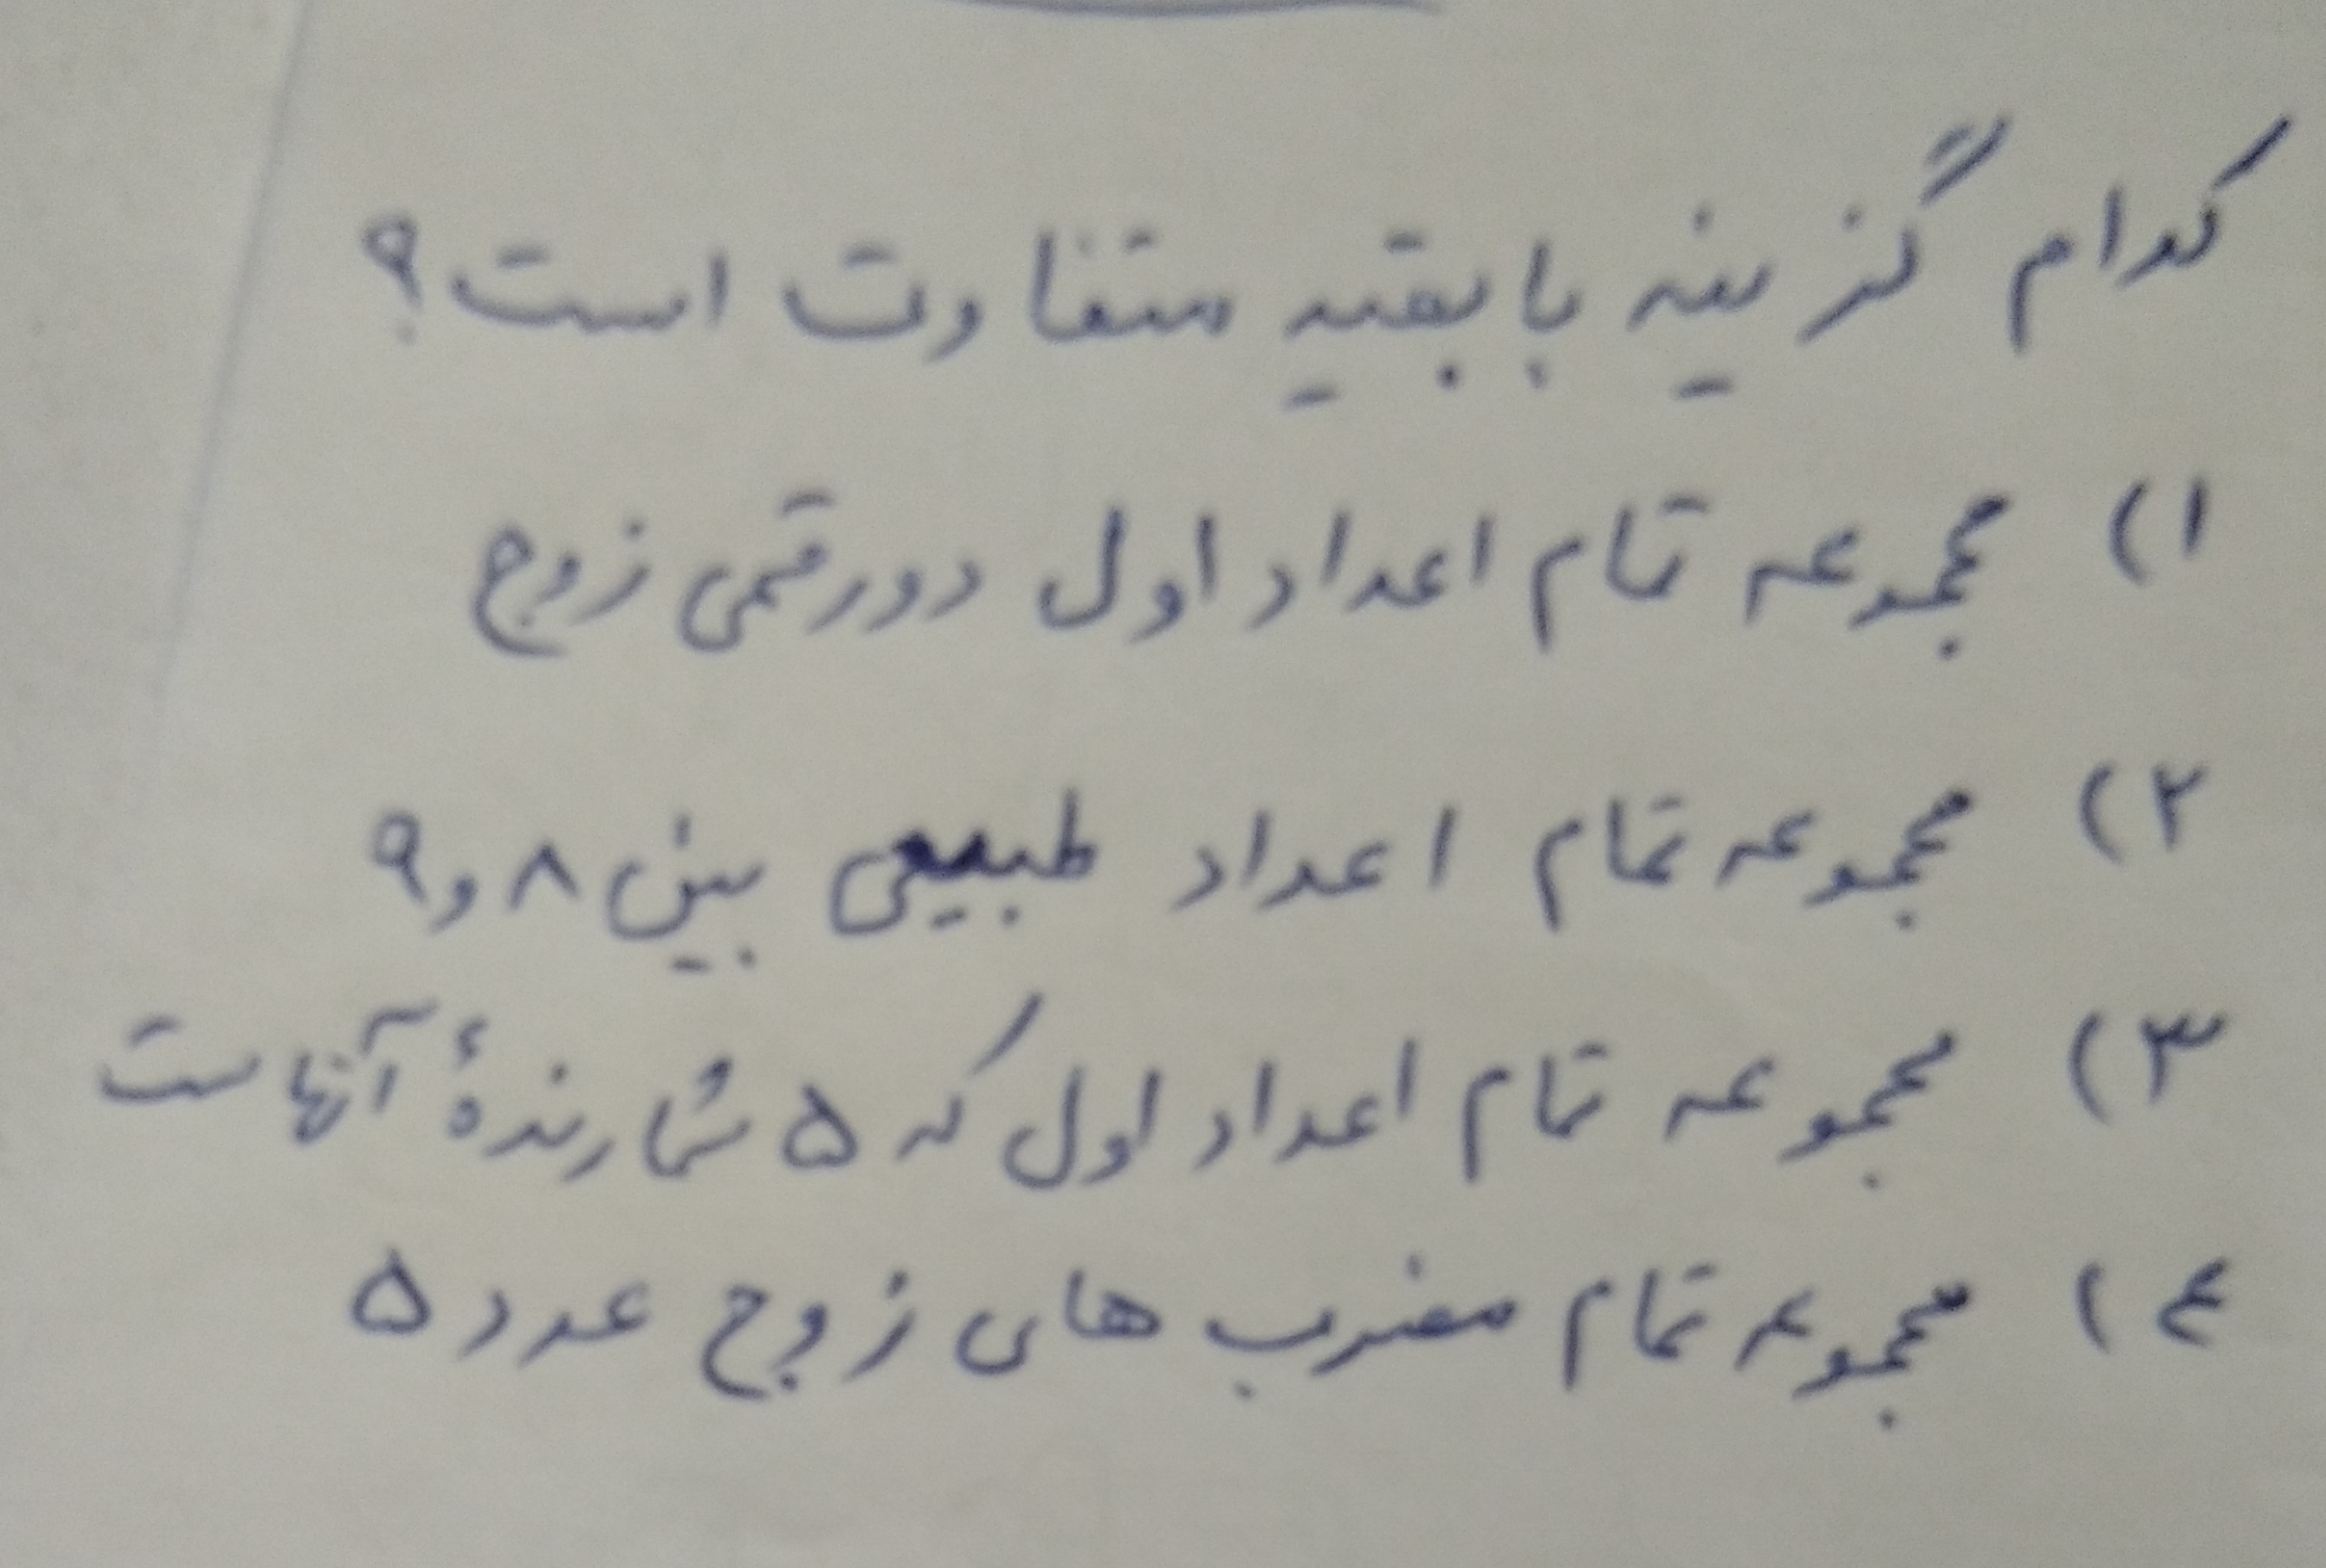 کدام گزینه با بقیه متفاوت است؟
۱) مجموعه تمام اعداد اول دورقمی زوج
۲) مجموعه تمام اعداد طبیعی بین ۸ و ۹
۳) مجموعه تمام اعداد اول که ۵ شمارندهٔ آنهاست
۴) مجموعه تمام مضرب های زوج عدد ۵